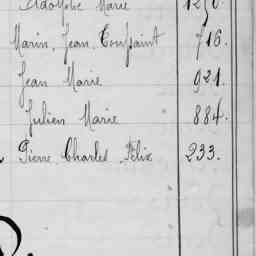 Adolphe Marie 1270.
Marin, Jean Toussaint 716.
Jean Marie 921.
Julien Marie 884.
Pierre Charles Félix 233.